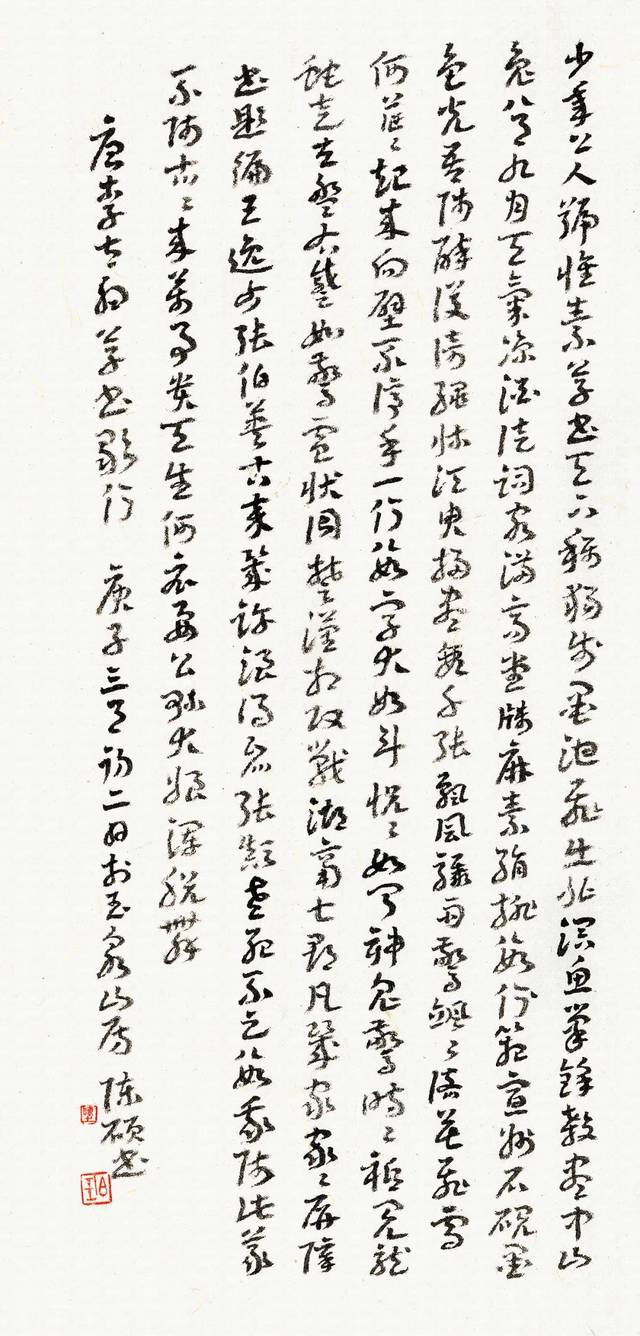 少年上人號懷素草書天下稱獨步墨池飛出北溟魚筆鋒殺盡中山
兔八月九月天氣涼酒徒詞客滿高堂牋麻素絹排數宣州石硯墨
色光吾師醉後倚繩床須臾掃盡數千張飄風驟雨驚颯々落花飛雪
何茫々起來向壁不停手一行數字大如斗怳々如聞神鬼驚時々祗見龍
蛇走左盤右蹙如驚電狀同楚漢相攻戰湖南七郡凡幾家家々屏障
書題遍王逸少張伯英古來幾許浪得名張顛老死不足數我師此義
不師古々來萬事貴天生何必要公孫大娘渾脫舞
唐李太白草書歌行 庚子三月初二日於玉泉山房 陳碩書